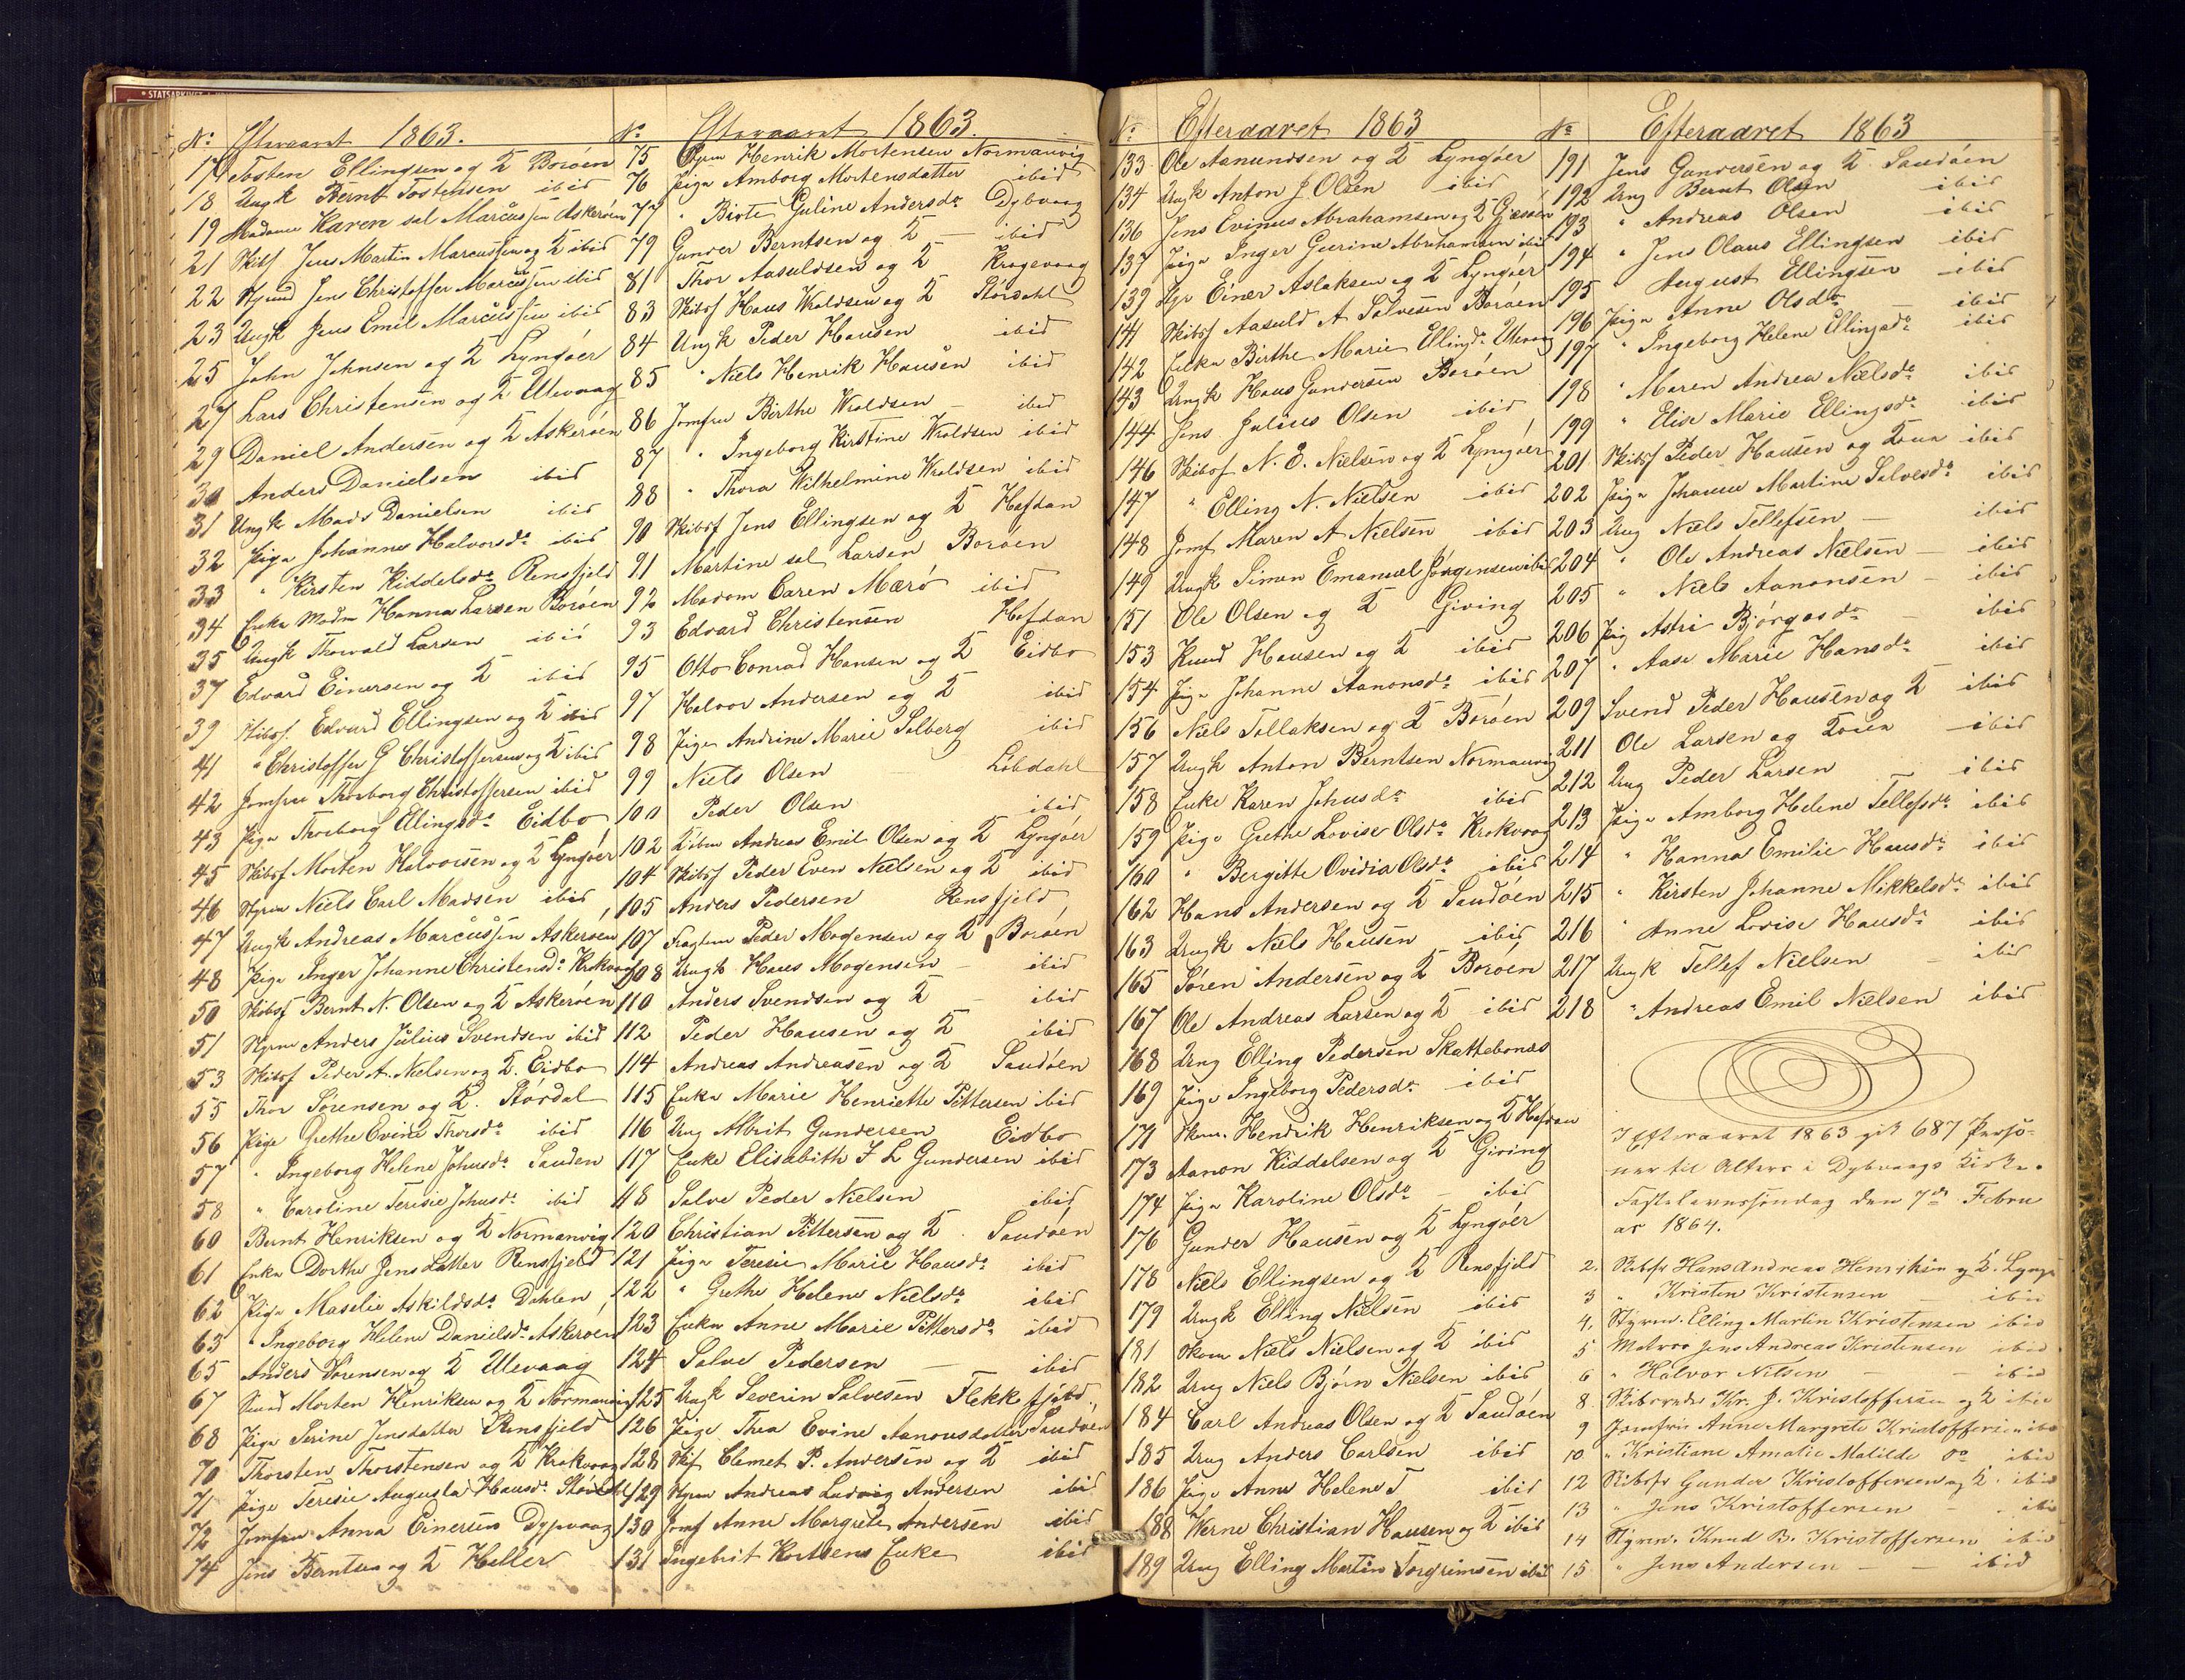 STATSARKIVET
No: Efteraaret 1863.
17 Tosten Ellingsen og K Borøen
18 Ungk Bernt Tostensen ibid
19 Madame Karen sal Marcussen Askerøen
21 Skibsf Jens Martin Marcussen og K ibid
22 Styrmd Jens Christoffer Marcussen ibid
23 Ungk Jens Emil Marcussen ibid
25 John Johnsen og K Lyngöer
27 Lars Christensen og K Ulevaag
29 Daniel Andersen og K Askerøen
30 Anders Danielsen ibid
31 Ungk Mads Danielsen ibid
32 Pige Johanne Halvorsdr ibid
33 " Kirsten Kiddelsdr Rensfjeld
34 Enke Madm Hanna Larsen Borøen
35 Ungk Thorvald Larsen ibid
37 Edvard Einersen og K ibid
39 Skibsf. Edvard Ellingsen og K ibid
41 " Christoffer G Christoffersen og K ibid
42 Jomfru Thorborg Christoffersen ibid
43 Pige Thorborg Ellingsdr Eidbo
45 Skibsf Morten Halvorsen og K Lyngöer
46 Styrm Niels Carl Madsen ibid
47 Ungk Andreas Marcussen Askerøen
48 Pige Inger Johanne Christensdr Krokvaag
50 Skibsf Bernt N. Olsen og K Askerøen
51 Styrm Anders Julius Svendsen ibid
53 Skibsf Peder A. Nielsen og K. Eidbo
55 Thor Sørensen og K. Stördal
56 Pige Grethe Evine Thorsdr ibid
57 " Ingeborg Helene Johnsdr Sanden
58 " Caroline Teresie Johnsdr ibid
60 Bernt Henriksen og K Normanvig
61 Enke Dorthe Jensdatter Rensfjeld
62 Pige Maselie Askildsdr Dahlen
63 " Ingeborg Helene Danielsdr Askerøen
65 Anders Sørensen og K Ulevaag
67 Morten Henriksen og K Normanvig
68 Pige Serine Jensdatter Rensfjeld
70 Thorsten Thorstensen og K Krokvaag
71 Pige Teresie Augusta Hansdr Stördahl
72 Jomfru Anna Einersen Dypvaag
74 Jens Berntsen og K Heller
No Efteraaret 1863.
75 Styrm Henrik Mortensen Normanvig
76 Pige Amborg Mortensdatter ibid
77 " Birte Guline Andersdr Dybvaag
79 Gunder Berntsen og K ibid
81 Thor Aasuldsen og K Kragevaag
83 Skibsf Hans Woldsen og K Stördahl
84 Ungk Peder Hansen ibid
85 " Niels Henrik Hansen ibid
86 Jomfru Birthe Woldsen ibid
87 " Ingeborg Kirstine Woldsen ibid
88 " Thora Wilhelmine Woldsen ibid
90 Skibsf Jens Ellingsen og K Hafdan
91 Martine sal Larsen Borøen
92 Madam Caren Mærö ibid
93 Edvard Christensen Hafdan
95 Otto Conrad Hansen og K Eidbo
97 Halvor Andersen og K ibid
98 Pige Andrine Marie Solberg ibid
99 Niels Olsen Löbdahl
100 Peder Olsen ibid
102 Andreas Emil Olsen og K Lyngöer
104 Skibsf Peder Even Nielsen og K ibid
105 Anders Pedersen Rensfjeld
107 Peder Mogensen og K Borøen
108 Ungk Hans Mogensen ibid
110 Anders Svendsen og K ibid
112 Peder Hansen og K ibid
114 Andreas Andreasen og K Sandöen
115 Enke Marie Henriette Pettersen ibid
116 Ung Albrit Gundersen Eidbo
117 Enke Elisabith F L Gundersen ibid
118 Salve Peder Nielsen ibid
120 Christian Pettersen og K Sandöen
121 Pige Teresie Marie Hansdr ibid
122 " Grethe Helene Nielsdr ibid
123 Enke Anne Marie Pettersdr ibid
124 Salve Pedersen ibid
125 Ungk Severin Salvesen Flekkefjord
126 Pige Thea Evine Aanonsdatter Sandöen
128 Skif Clemet P. Andersen og K ibid
129 Styrm Andreas Ludvig Andersen ibid
130 Jomf Anne Margrete Andersen ibid
131 Ingebrit Kortsens Enke ibid
No: Efteraaret 1863
133 Ole Aanundsen og K Lyngöer
134 Ungk Anton J Olsen ibid
136 Jens Evinus Abrahamsen og K Gjessøen
137 Pige Inger Gurine Abrahamsen ibid
139 Einer Aslaksen og K Lyngöer
141 Skibsf Aasuld A Salvesen Borøen
142 Enke Birthe Marie Ellingsdr Ulevaag
143 Ungk Hans Gundersen Borøen
144 Jens Julius Olsen ibid
146 Skibsf N. E. Nielsen og K Lyngöer
147 " Elling N. Nielsen ibid
148 Jomf Maren A Nielsen ibid
149 Ungk Simon Emanuel Jörgensen ibid
151 Ole Olsen og K Giving
153 Knud Hansen og K ibid
154 Pige Johanne Aanonsdr ibid
156 Niels Tollaksen og K Borøen
157 Ungk Anton Berntsen Normanvig
158 Enke Karen Johnsdr ibid
159 Pige Grethe Lovise Olsdr Krokvaag
160 " Bergitte Ovidia Olsdr ibid
162 Hans Andersen og K Sandöen
163 Ungk Niels Hansen ibid
165 Sören Andersen og K Borøen
167 Ole Andreas Larsen og K ibid
168 Ung Elling Pedersen Skattebonæs
169 Pige Ingeborg Pedersdr ibid
171 Skom. Hendrik Henriksen og K Hafdan
173 Aanon Kiddelsen og K Giving
174 Pige Karoline Olsdr ibid
176 Gunder Hansen og K Lyngöer
178 Niels Ellingsen og K Rensfjeld
179 Ungk Elling Nielsen ibid
181 Skom Niels Nielsen og K ibid
182 Ung Niels Bjørn Nielsen ibid
184 Carl Andreas Olsen og K Sandöen
185 Ung Anders Carlsen ibid
186 Pige Anne Helene T ibid
188 Werne Christian Hansen og K ibid
189 Ung Elling Martin Torgrimsen ibid
No Efteraaret 1863
191 Jens Gundersen og K. Sandöen
192 Ung Bernt Olsen ibid
193 " Andreas Olsen ibid
194 " Jens Olaus Ellingsen ibid
195 " August Ellingsen ibid
196 Pige Anne Olsdr ibid
197 " Ingeborg Helene Ellingsdr ibid
198 " Maren Andrea Nielsdr ibid
199 " Elise Marie Ellingsdr ibid
201 Skibsf Peder Hansen og Kone ibid
202 Pige Johanne Martine Salvesdr ibid
203 Ung Niels Tellefsen ibid
204 " Ole Andreas Nielsen ibid
205 " Niels Aanonsen ibid
206 Pig Astri Bjørgosdr ibid
207 " Aase Marie Hansdr ibid
209 Svend Peder Hansen og K ibid
211 Ole Larsen og Kone ibid
212 Ung Peder Larsen ibid
213 Pige Amborg Helene Tellefsdr ibid
214 " Hanna Emilie Hansdr ibid
215 " Kirsten Johanne Mikkelsdr ibid
216 " Anne Lovise Hansdr ibid
217 Ungk Tellef Nielsen ibid
218 " Andreas Emil Nielsen ibid
I Efteraaret 1863 gik 687 Perso-
ner til Alters i Dybvaags Kirke.
Fastelavnssöndag den 7de Febru
ar 1864.
2. Skibsfr Hans Andreas Henriksen og K. Lyngö
3 " Kristen Kristensen ibid
4. Styrm. Elling Martin Kristensen ibid
5 Matros Jens Andreas Kristensen ibid
6 " Halvor Nilsen ibid
8. Kr. J. Kristoffersen og K ibid
9 Jomfru Anne Margrete Kristoffersen ibid
10. " Kristiane Amalie Matilde do ibid
12 Skibsfr Gunder Kristoffersen og K. ibid
13 " Jens Kristoffersen ibid
14 Styrm. Knud B. Kristoffersen ibid
15 " Jens Andersen ibid